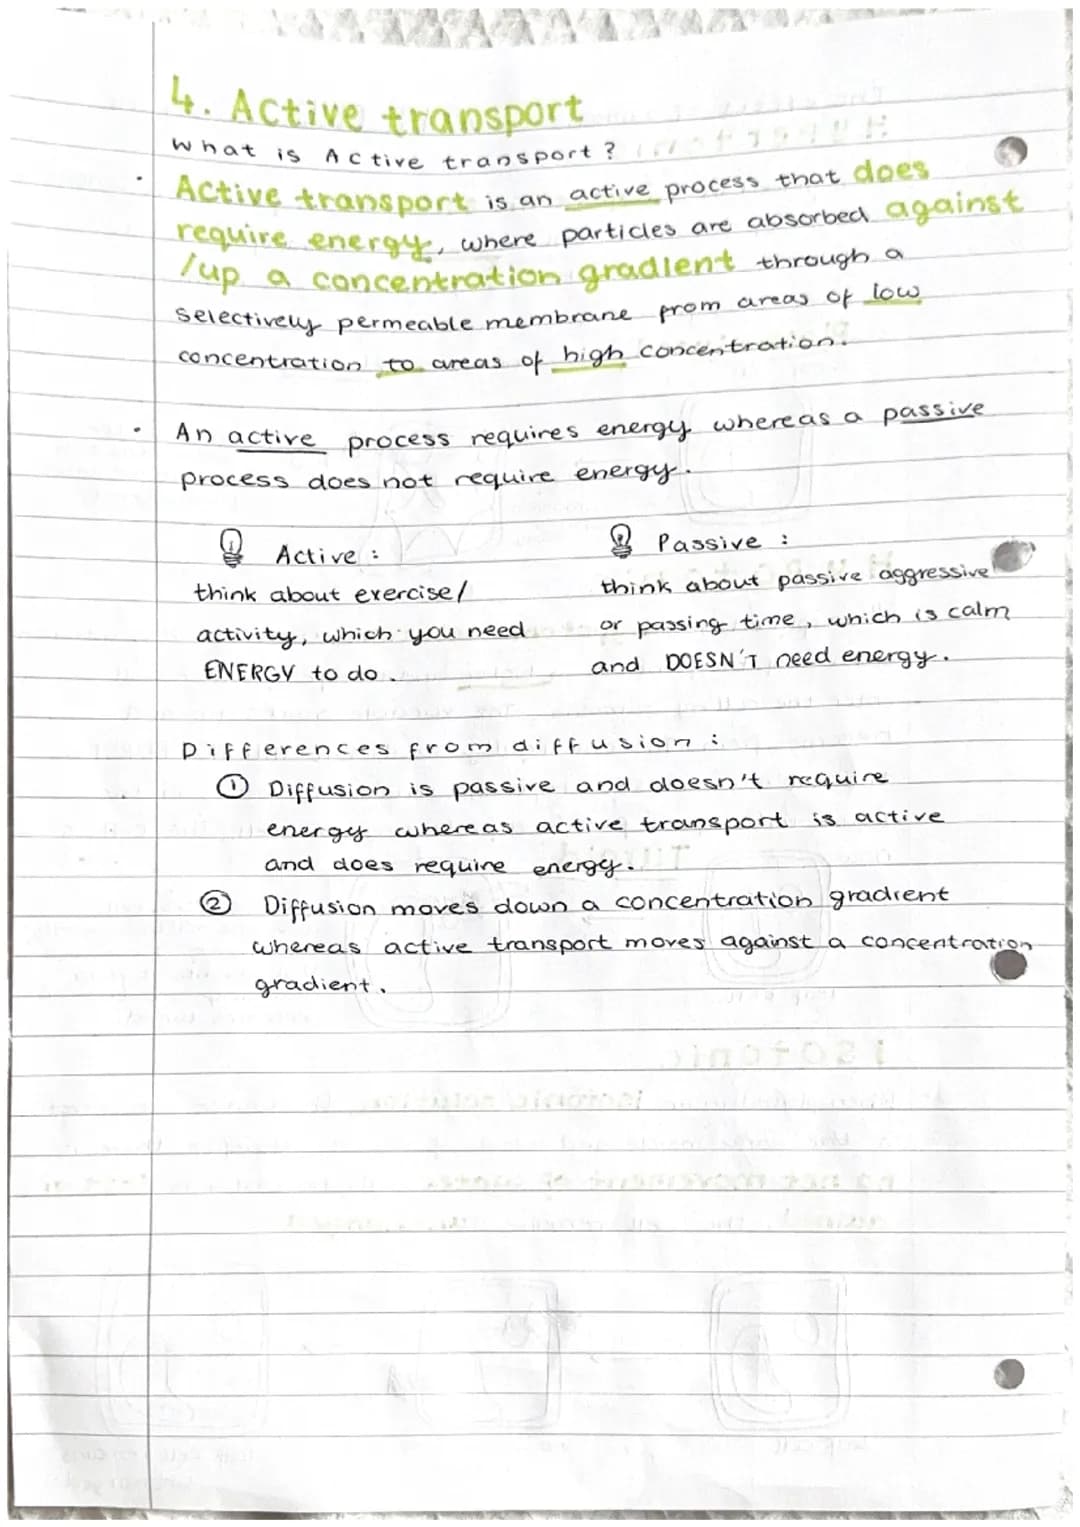 4. Active transport
What is Active transport?
• Active transport is an active process that does
require energy, where particles are absorbed against
/up a concentration gradient through a
selectively permeable membrane from areas of low
concentration to areas of high concentration.
• An active process requires energy whereas a passive
process does not require energy.
Active:
think about exercise/
activity, which you need
ENERGY to do.
Passive:
think about passive aggressive
or passing time, which is calm
and DOESN'T need energy.
Differences from diffusion:
① Diffusion is passive and doesn't require
energy whereas active transport is active
and does require energy.
② Diffusion moves down a concentration gradient
whereas active transport moves against a concentration
gradient.